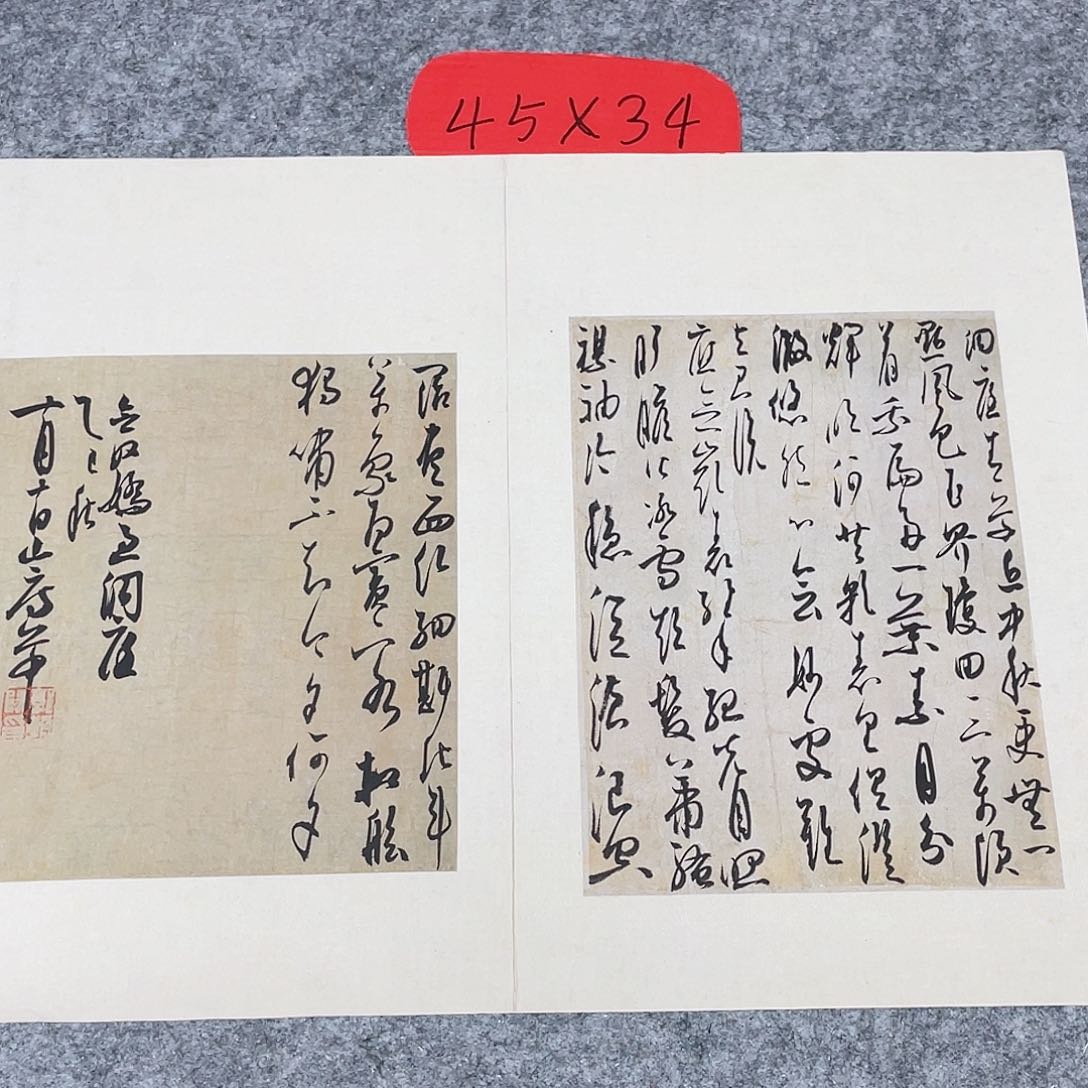 洞庭青草近中秋更無一
點風色玉界瓊田三萬頃
着我扁舟一葉素月分
輝明河共影表裏俱澄
澈悠然心會妙處難
與君說
應念嶺表經年孤光自照
肝膽皆冰雪短髮蕭騷
襟袖冷穩泛滄浪空
闊盡西江細斟北斗
萬象為賓客扣舷
獨嘯不知今夕何夕
念奴嬌過洞庭
乙巳秋
十月十日山房草
45X34